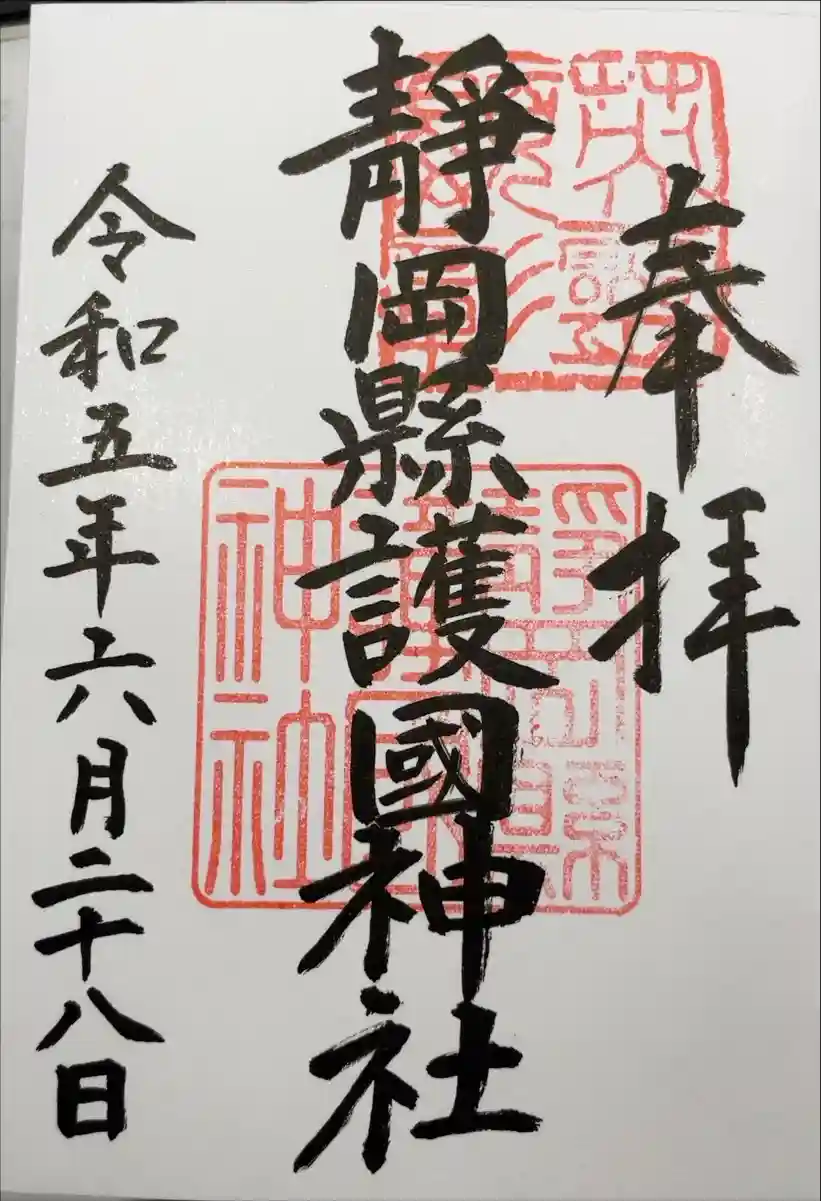 奉拝
靜岡縣護國神社
令和五年六月二十八日
靜岡縣
護國
神社